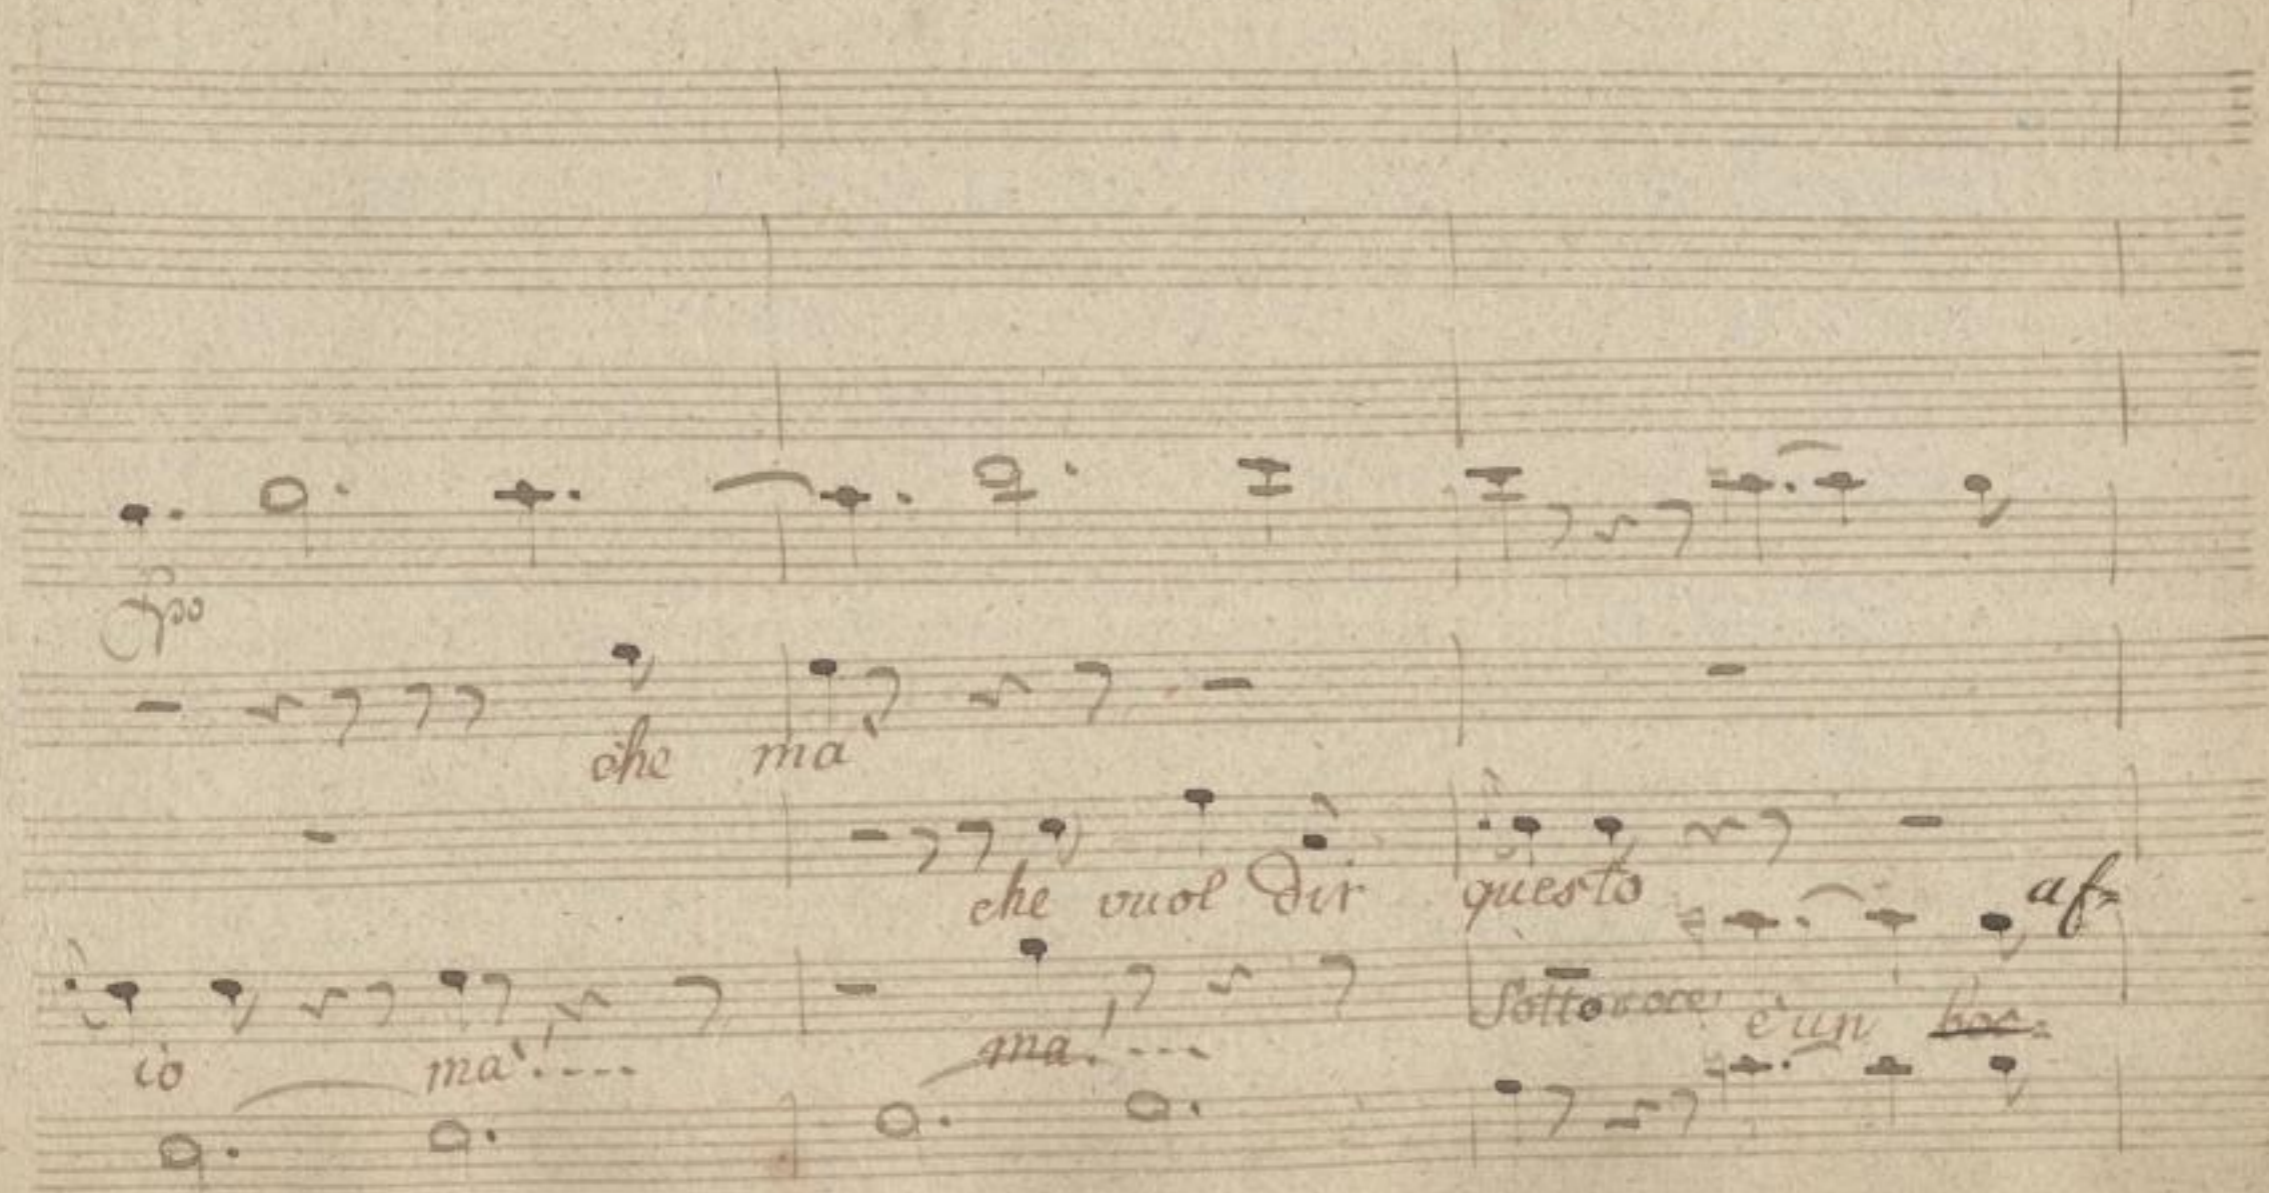 che ma'
che vuol dir questo
af=
io ma'.---- ma.----
Sottovoce è un